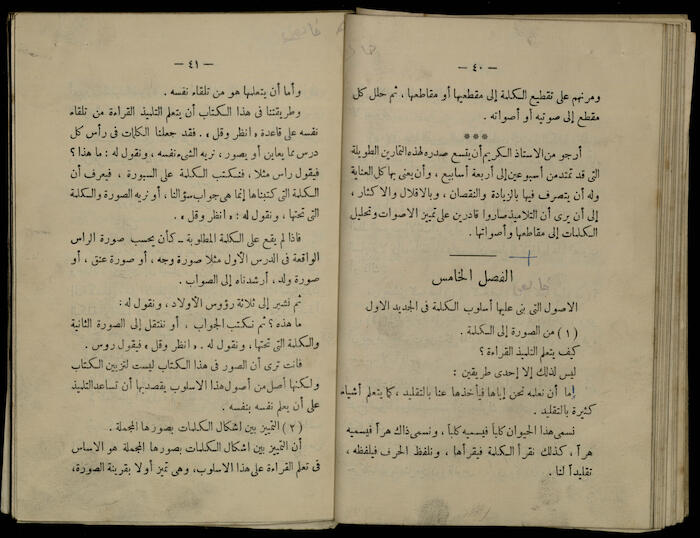 — ٤٠ —
ومرنهم على تقطيع الكلمة إلى مقطعيها أو مقاطعها ، ثم حلل كل
مقطع إلى صوتيه أو أصواته .
***
أرجو من الاستاذ الكريم أن يتسع صدره لهذه التمارين الطويلة
التي قد تمتد من أسبوعين إلى أربعة أسابيع ، وأن يعنى بها كل العناية
وله أن يتصرف فيها بالزيادة والنقصان ، وبالاقلال والاكثار ،
إلى أن يرى أن التلاميذ صاروا قادرين على تمييز الاصوات وتحليل
الكلمات إلى مقاطعها وأصواتها .
الفصل الخامس
الاصول التي بنى عليها أسلوب الكلمة في الجديد الاول
( ١ ) من الصورة إلى الكلمة .
كيف يتعلم التلميذ القراءة ؟
ليس لذلك إلا إحدى طريقين :
إما أن نعلمه نحن إياها فيأخذها عنا بالتقليد ، كما يتعلم أشياء
كثيرة بالتقليد .
نسمى هذا الحيوان كلباً فيسميه كلباً ، ونسمى ذاك هراً فيسميه
هراً ، كذلك نقرأ الكلمة فيقرأها ، ونلفظ الحرف فيلفظه ،
تقليداً لنا .
— ٤١ —
وأما أن يتعلمها هو من تلقاء نفسه .
وطريقتنا في هذا الكتاب أن يتعلم التلميذ القراءة من تلقاء
نفسه على قاعدة « انظر وقل » . فقد جعلنا الكلمات في رأس كل
درس مما يعاين أو يصور ، نريه الشيء نفسه ، ونقول له : ما هذا ؟
فيقول راس مثلا ، فنكتب الكلمة على السبورة ، فيعرف أن
الكلمة التي كتبناها إنما هي جواب سؤالنا ، أو نريه الصورة والكلمة
التي تحتها ، ونقول له : « انظر وقل » .
فاذا لم يقع على الكلمة المطلوبة ــ كأن يحسب صورة الراس
الواقعة في الدرس الأول مثلا صورة وجه ، أو صورة عنق ، أو
صورة ولد ، أرشدناه إلى الصواب .
ثم نشير إلى ثلاثة رؤوس الاولاد ، ونقول له :
ما هذه ؟ ثم نكتب الجواب ، أو ننتقل إلى الصورة الثانية
والكلمة التي تحتها ، ونقول له . « انظر وقل » فيقول روس .
فانت ترى أن الصور في هذا الكتاب ليست لتزيين الكتاب
ولكنها أصل من أصول هذا الاسلوب يقصد بها أن تساعد التلميذ
على أن يعلم نفسه بنفسه .
( ٢ ) التمييز بين اشكال الكلمات بصورها المجملة .
أن التمييز بين اشكال الكلمات بصورها المجملة هو الاساس
في تعلم القراءة على هذا الاسلوب ، وهى تميز أولا بقرينة الصورة ،